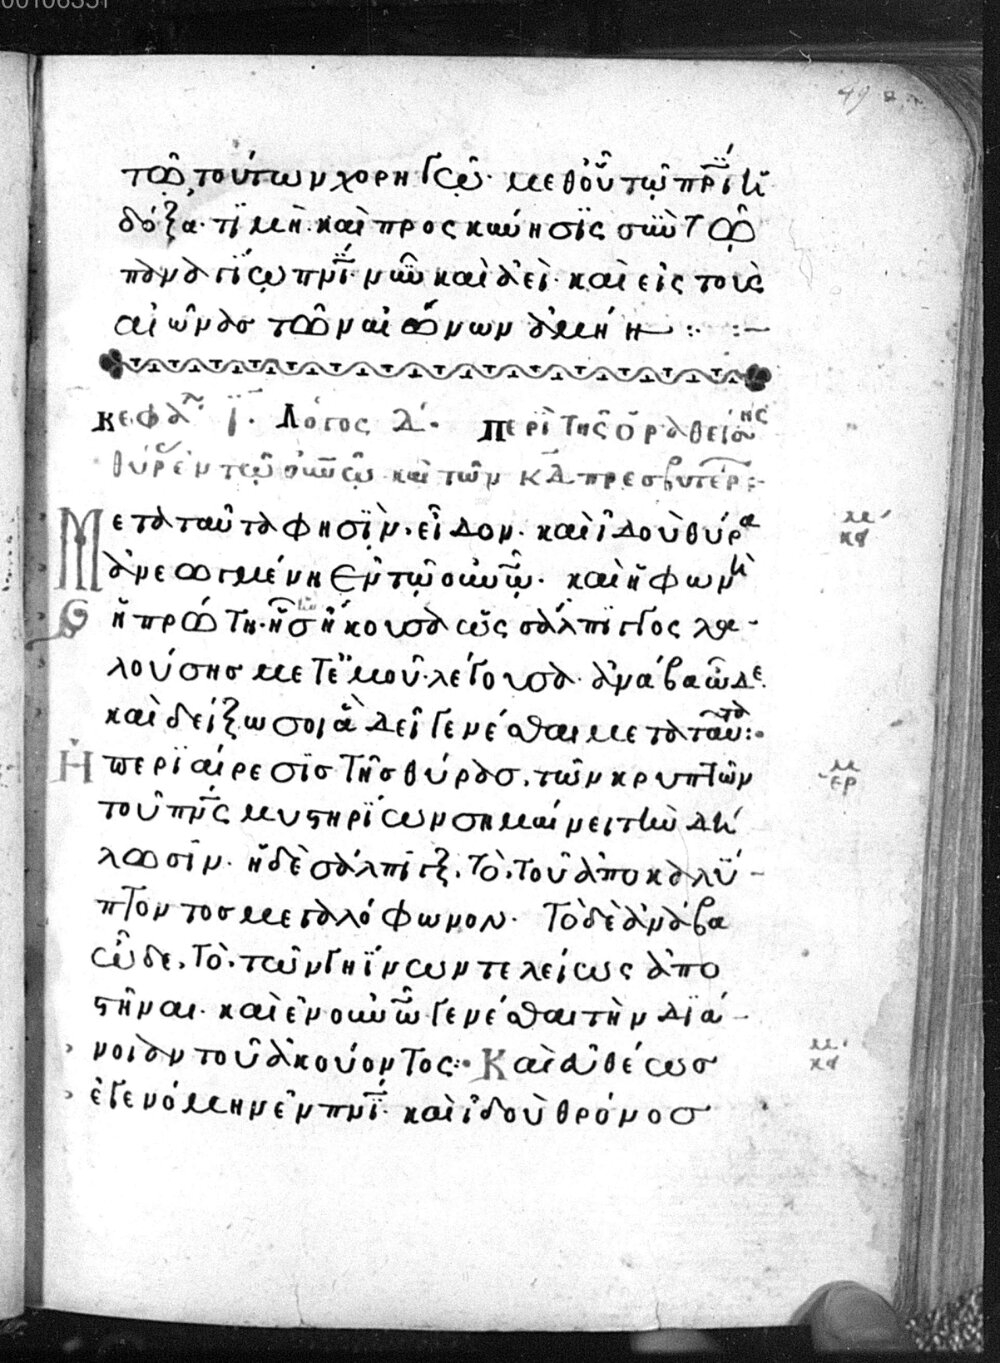 τῶ τούτων χορηγῶ· μεθ' οὗ τῶ πρὶ ἡ
δόξα· τϊμὴ· καὶ προσκύνησϊς σὺν τῶ
παναγίω πνϊ· νῦν καὶ ἀεὶ· καὶ εἰς τοὺς
αἰῶνασ τῶν αἰώνων ἀμήν :· :—
κεφαλ ϊ· Λόγος δ· περὶ τῆς ὁραθείσης
θύρ ἐν τῶ οὐνῶ καὶ τῶν κδ πρεσβυτέρ :-
Μετὰ ταῦτα φησϊν, εἶδον· καὶ ἰδοὺ θύρα
ἀνεωγμένη ἐν τῶ οὐνῶ· καὶ ἡ φωνὴ
ἡ πρώτη· ἧσ ἤκουσα ὡς σάλπιγγος λα-
λούσησ μετ' ἐμοῦ· λέγουσα· ἀνάβα ὧδε·
καὶ δείξω σοι ἃ δεῖ γενέσθαι μετὰ ταῦτα :·
Ἡ περϊαίρεσϊσ τῆσ θύρασ, τῶν κρυπτῶν
τοῦ πνς μυστηρϊων σημαίνει τὴν δή
λωσϊν· ἡ δὲ σάλπιγξ, τὸ, τοῦ ἀποκαλύ-
πτοντοσ μεγαλόφωνον· τὸ δὲ ἀνάβα
ὧδε, τὸ, τῶν γηΐνων τελείως ἀπο
στῆναι· καὶ ἐν οὐνῶ γενέσθαι τὴν δϊά-
νοιαν τοῦ ἀκούοντος :· Καὶ εὐθέωσ
ἐγενόμην ἐν πνϊ· καὶ ἰδοὺ θρόνοσ
49
κει
ερ
κει